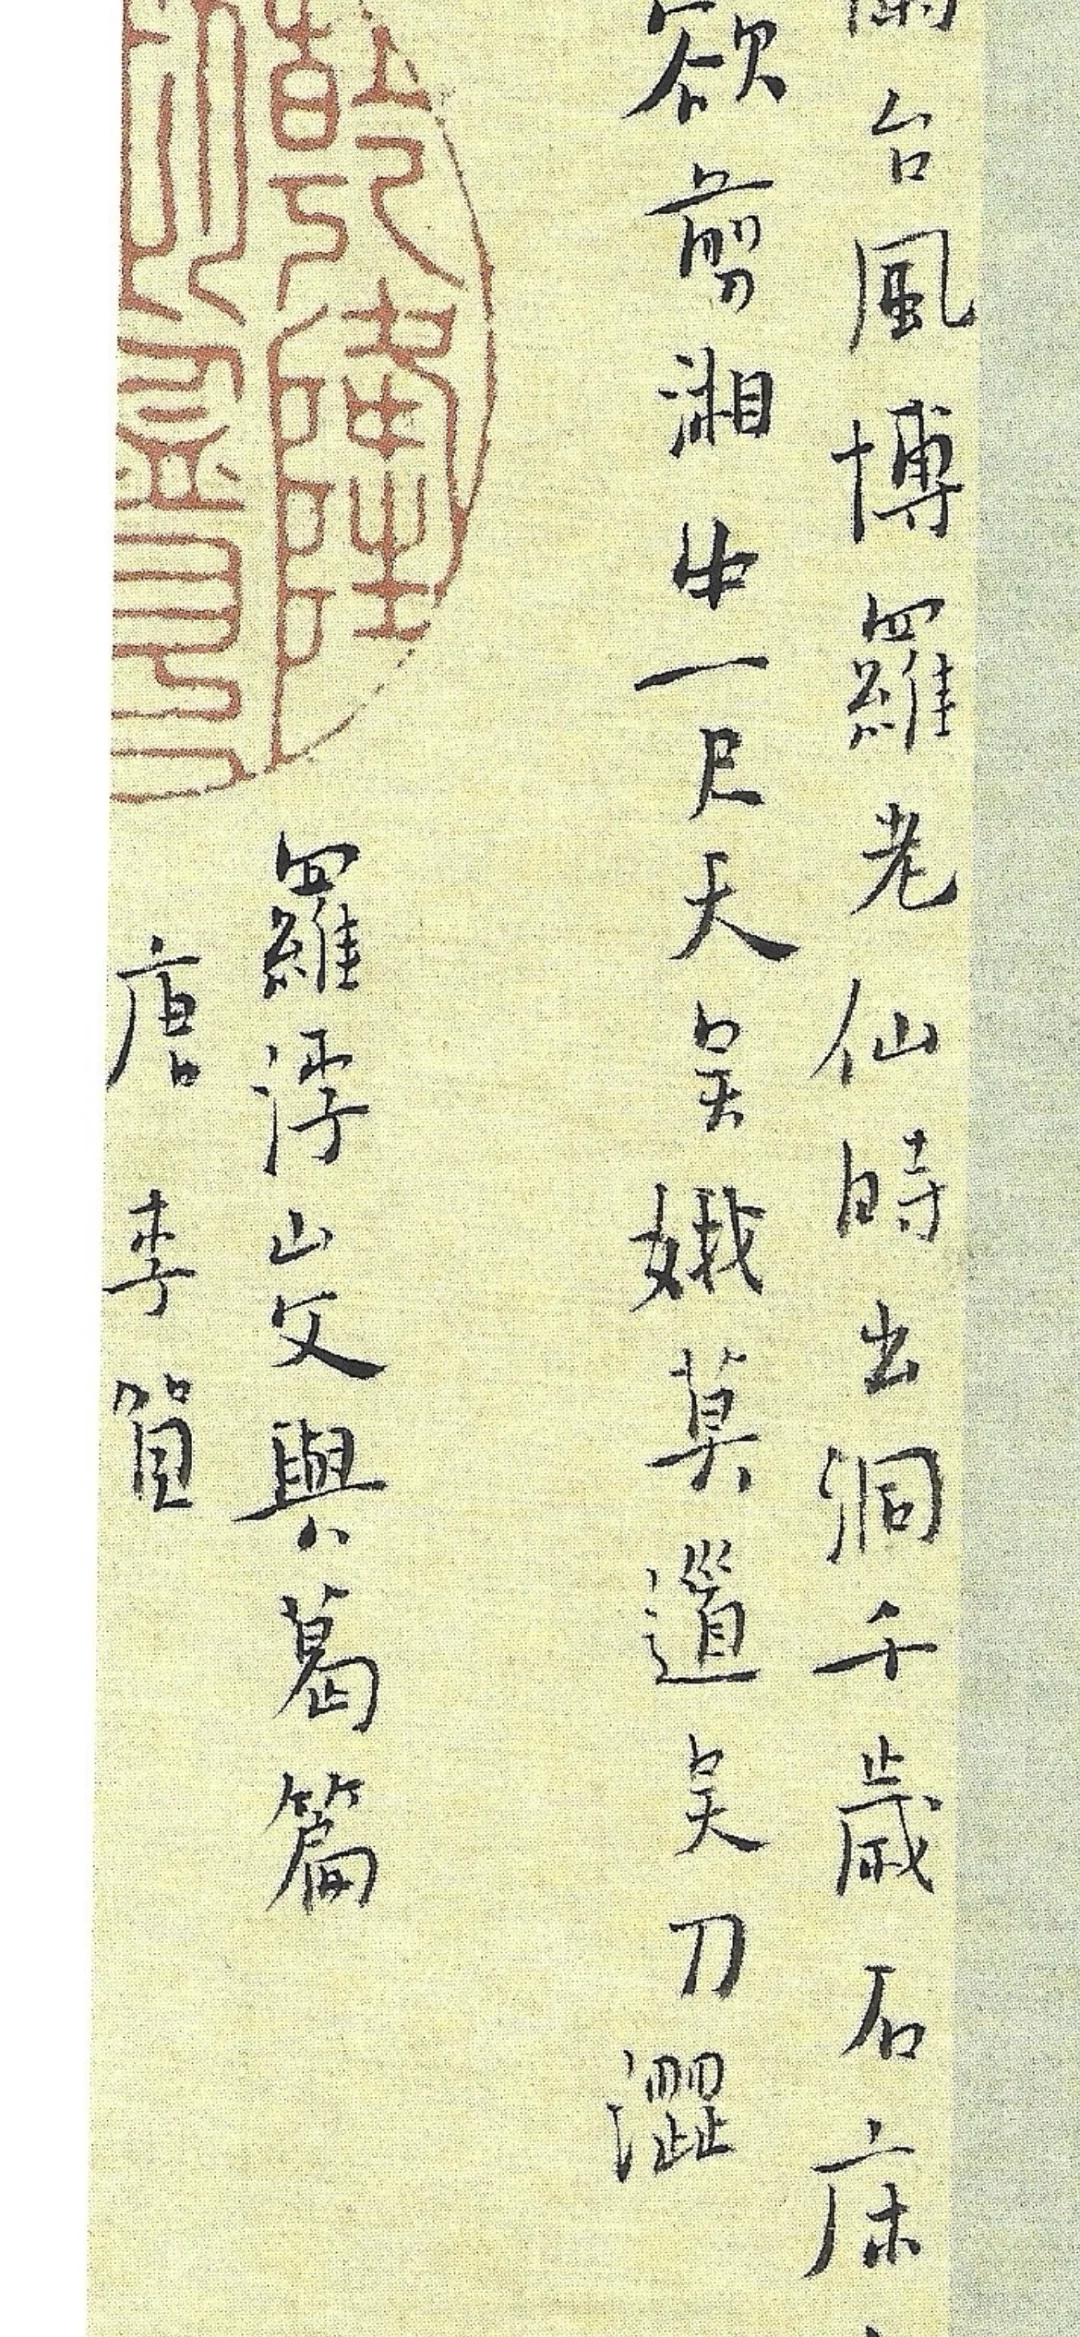 台風博羅老仙時出洞千歲石床
欲剪湘中一尺天吳娥莫道吳刀澀
羅浮山父與葛篇
唐李賀
乾隆